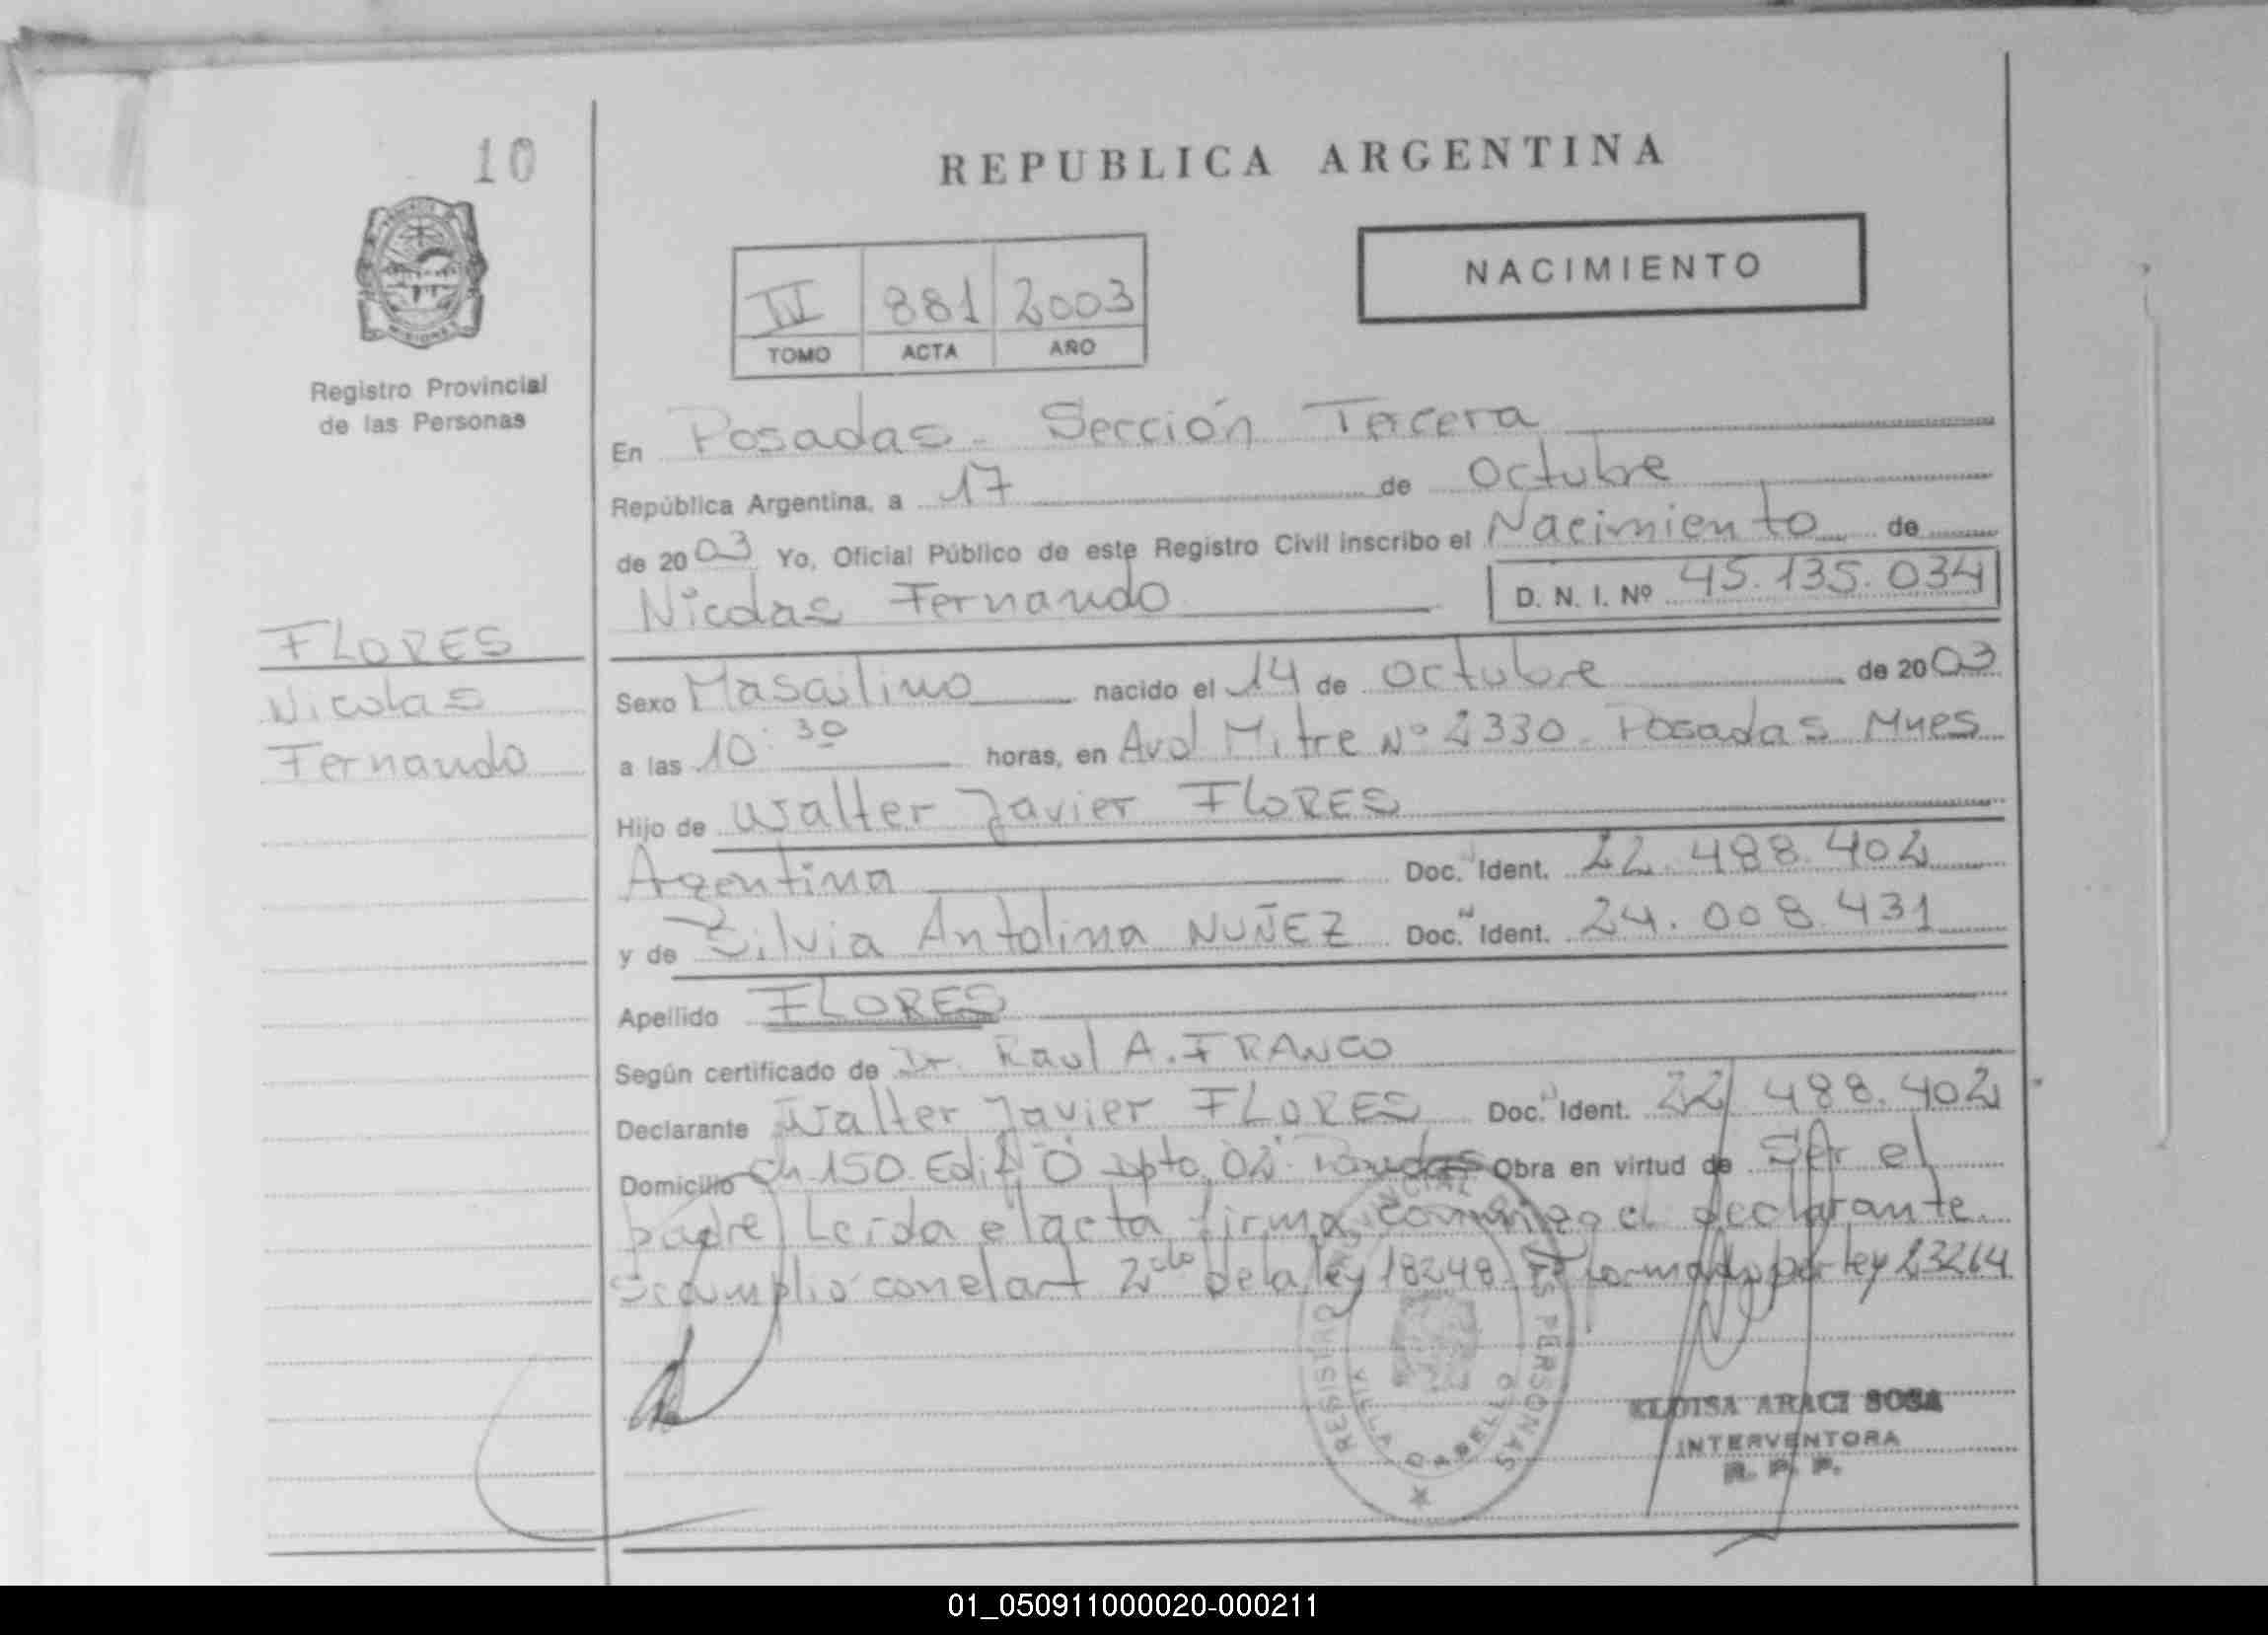 10
REPUBLICA ARGENTINA
NACIMIENTO
881 2003
TOMO ACTA AÑO
Registro Provincial
de las Personas
En Posadas - Sección Tercera
República Argentina, a 17 de Octubre
de 2003 Yo, Oficial Público de este Registro Civil inscribo el Nacimiento de
Nicolas Fernando D. N. I. Nº 45.135.034
FLORES
Nicolas
Fernando
Sexo Masculino nacido el 14 de Octubre de 2003
a las 10:30 horas, en Avd Mitre Nº 2330 - Posadas Mnes
Hijo de Walter Javier FLORES
Argentina Doc. Ident. 22.488.402
y de Silvia Antolina NUÑEZ Doc. Ident. 24.008.431
Apellido FLORES
Según certificado de Dr. Raul A. FRANCO
Declarante Walter Javier FLORES Doc. Ident. 22.488.402
Domicilio Ch 150 Edif "O" dpto 02 Posadas Obra en virtud de Ser el
padre Leída el acta firma conmigo el declarante.
Se cumplió con el art 2do de la ley 18248 por ley 23264
REGISTRO PROVINCIAL DE LAS PERSONAS
VILLA CABELLO
ELOISA ARACI SOSA
INTERVENTORA
R. P. P.
01_050911000020-000211